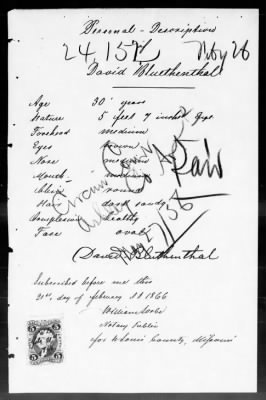 Personal - Description
24,152 Feby 26
David Bluthenthal
Age 30 years
Stature 5 feet 7 inches
Forehead medium
Eyes brown
Nose medium
Mouth medium
Paid
Chin round
Hair dark sandy
Complexion healthy
Face oval
David Bluthenthal
Subscribed before me this
21st, day of February 1866
Notary Public
for St Louis County, Missouri